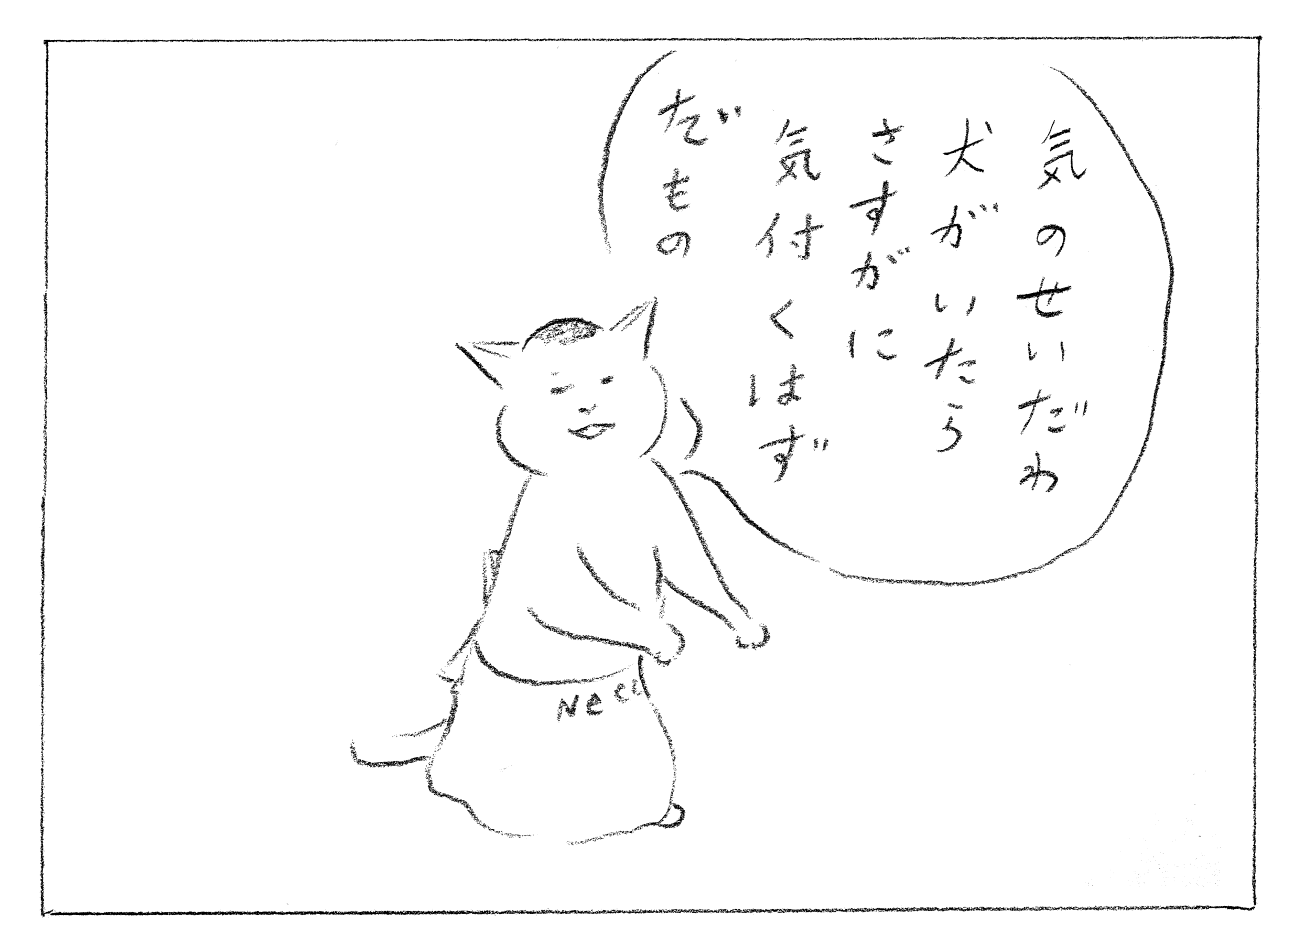 気のせいだわ
犬がいたら
さすがに
気付くはず
だもの